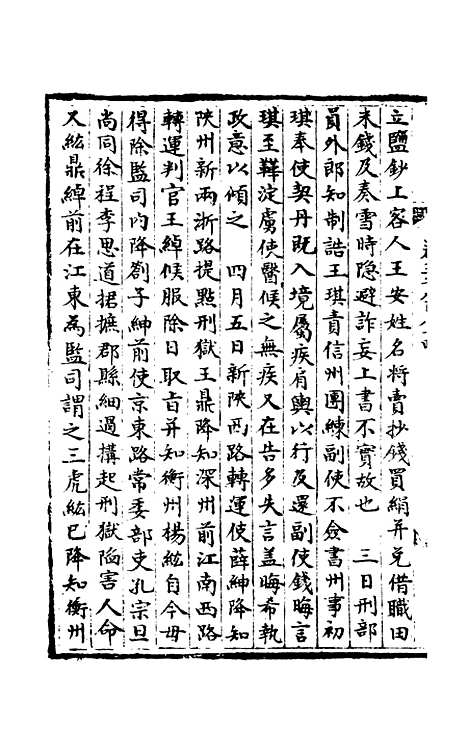 立鹽鈔上客人王安姓名將賣抄錢買絹并兌借職田
未錢及奏雪時隐避詐妄上書不實故也　三日刑部
員外郎知制誥王琪責信州團練副使不僉書州事初
琪奉使契丹既入境屬疾肩輿以行及還副使錢晦言
琪至鞾淀虜使醫候之無疾又在告多失言盖晦希執
政意以傾之　四月五日新陝西路轉運使薛紳降知
陝州新兩浙路提點刑獄王鼎降知深州前江南西路
轉運判官王綽候服除日取㫖并知衡州楊紘自今毋
得除監司內降劄子紳前使京東路常委部吏孔宗旦
尚同徐程李思道捃摭郡縣細過構起刑獄陷害人命
又紘鼎綽前在江東為監司謂之三虎紘已降知衡州